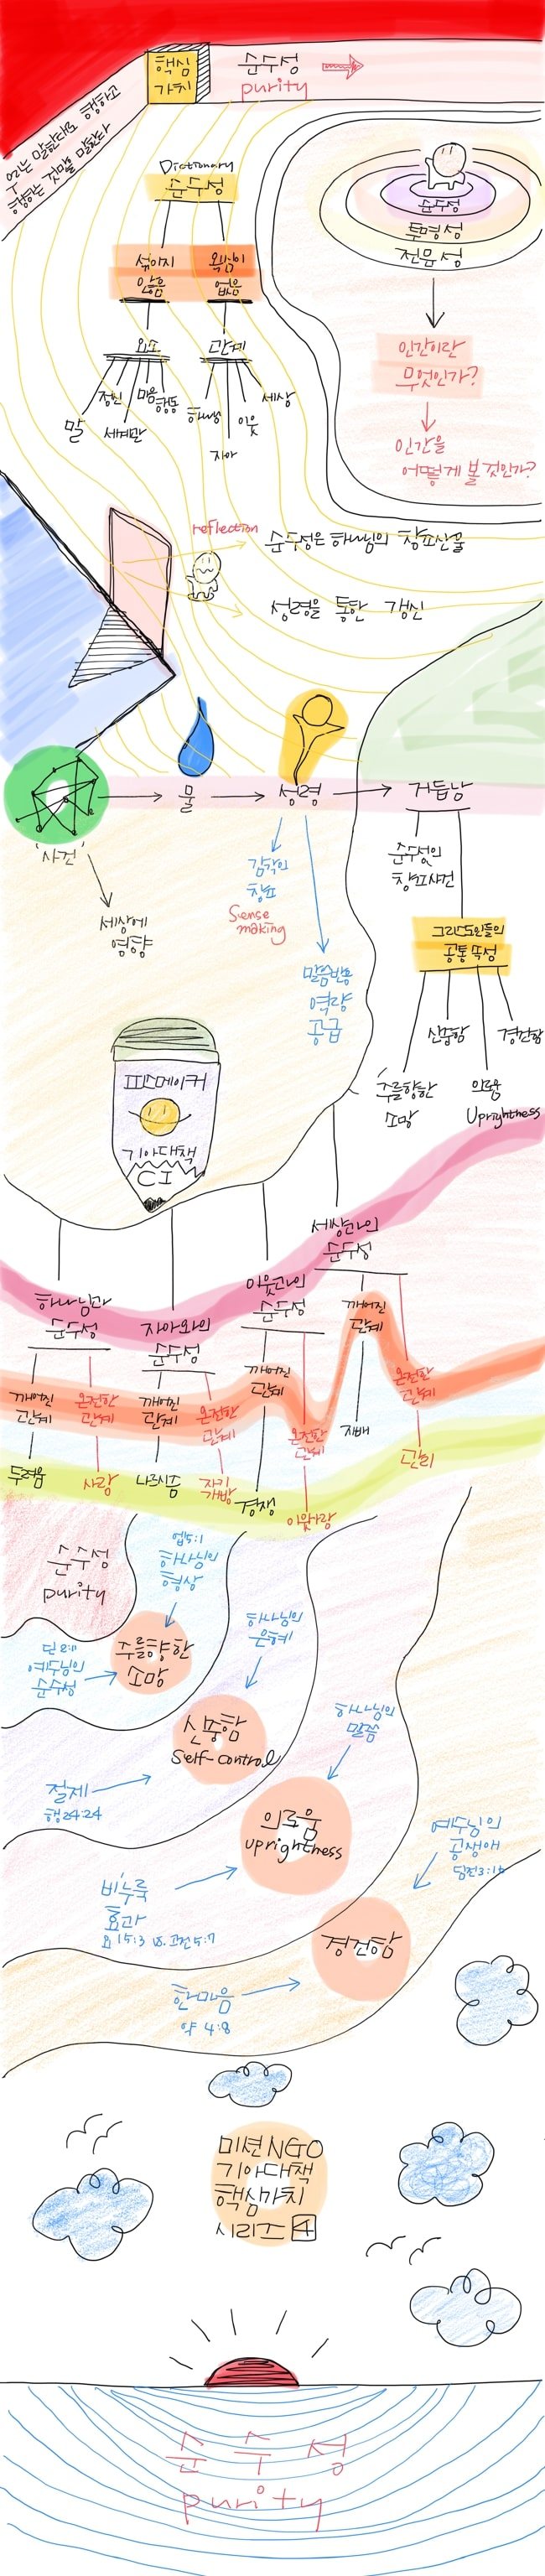 핵심
가치
순수성
purity
우리는 말한대로 행하고
행하는 것만을 말한다
Dictionary
순수성
섞이지
않음
욕심이
없음
요소
관계
말
정신
세계관
마음
행동
하나님
자아
이웃
세상
순수성
투명성
전문성
인간이란
무엇인가?
인간을
어떻게 볼것인가?
reflection
순수성은 하나님의 창조산물
성령을 통한 갱신
'사건'
물
성령
거듭남
세상에
영향
감각의
창조
Sense
making
말씀반응
역량
공급
순수성의
창조사건
그리스도인들의
공통 특성
주를향한
소망
신중함
의로움
Uprightness
경건함
피스메이커
기아대책
CI
하나님과
순수성
자아와의
순수성
이웃과의
순수성
세상과의
순수성
깨어진
관계
온전한
관계
깨어진
관계
온전한
관계
깨어진
관계
온전한
관계
깨어진
관계
온전한
관계
두려움
사랑
나르시즘
자기
개방
경쟁
이웃사랑
지배
관리
순수성
purity
엡5:1
하나님의
형상
주를향한
소망
딛2:11
예수님의
순수성
하나님의
은혜
신중함
self-control
절제
행24:24
하나님의
말씀
의로움
uprightness
비누룩
효과
요 15:3 vs. 고전5:7
예수님의
공생애
딤전3:16
경건함
한마음
약 4:8
미션NGO
기아대책
핵심가치
시리즈 4
순수성
purity